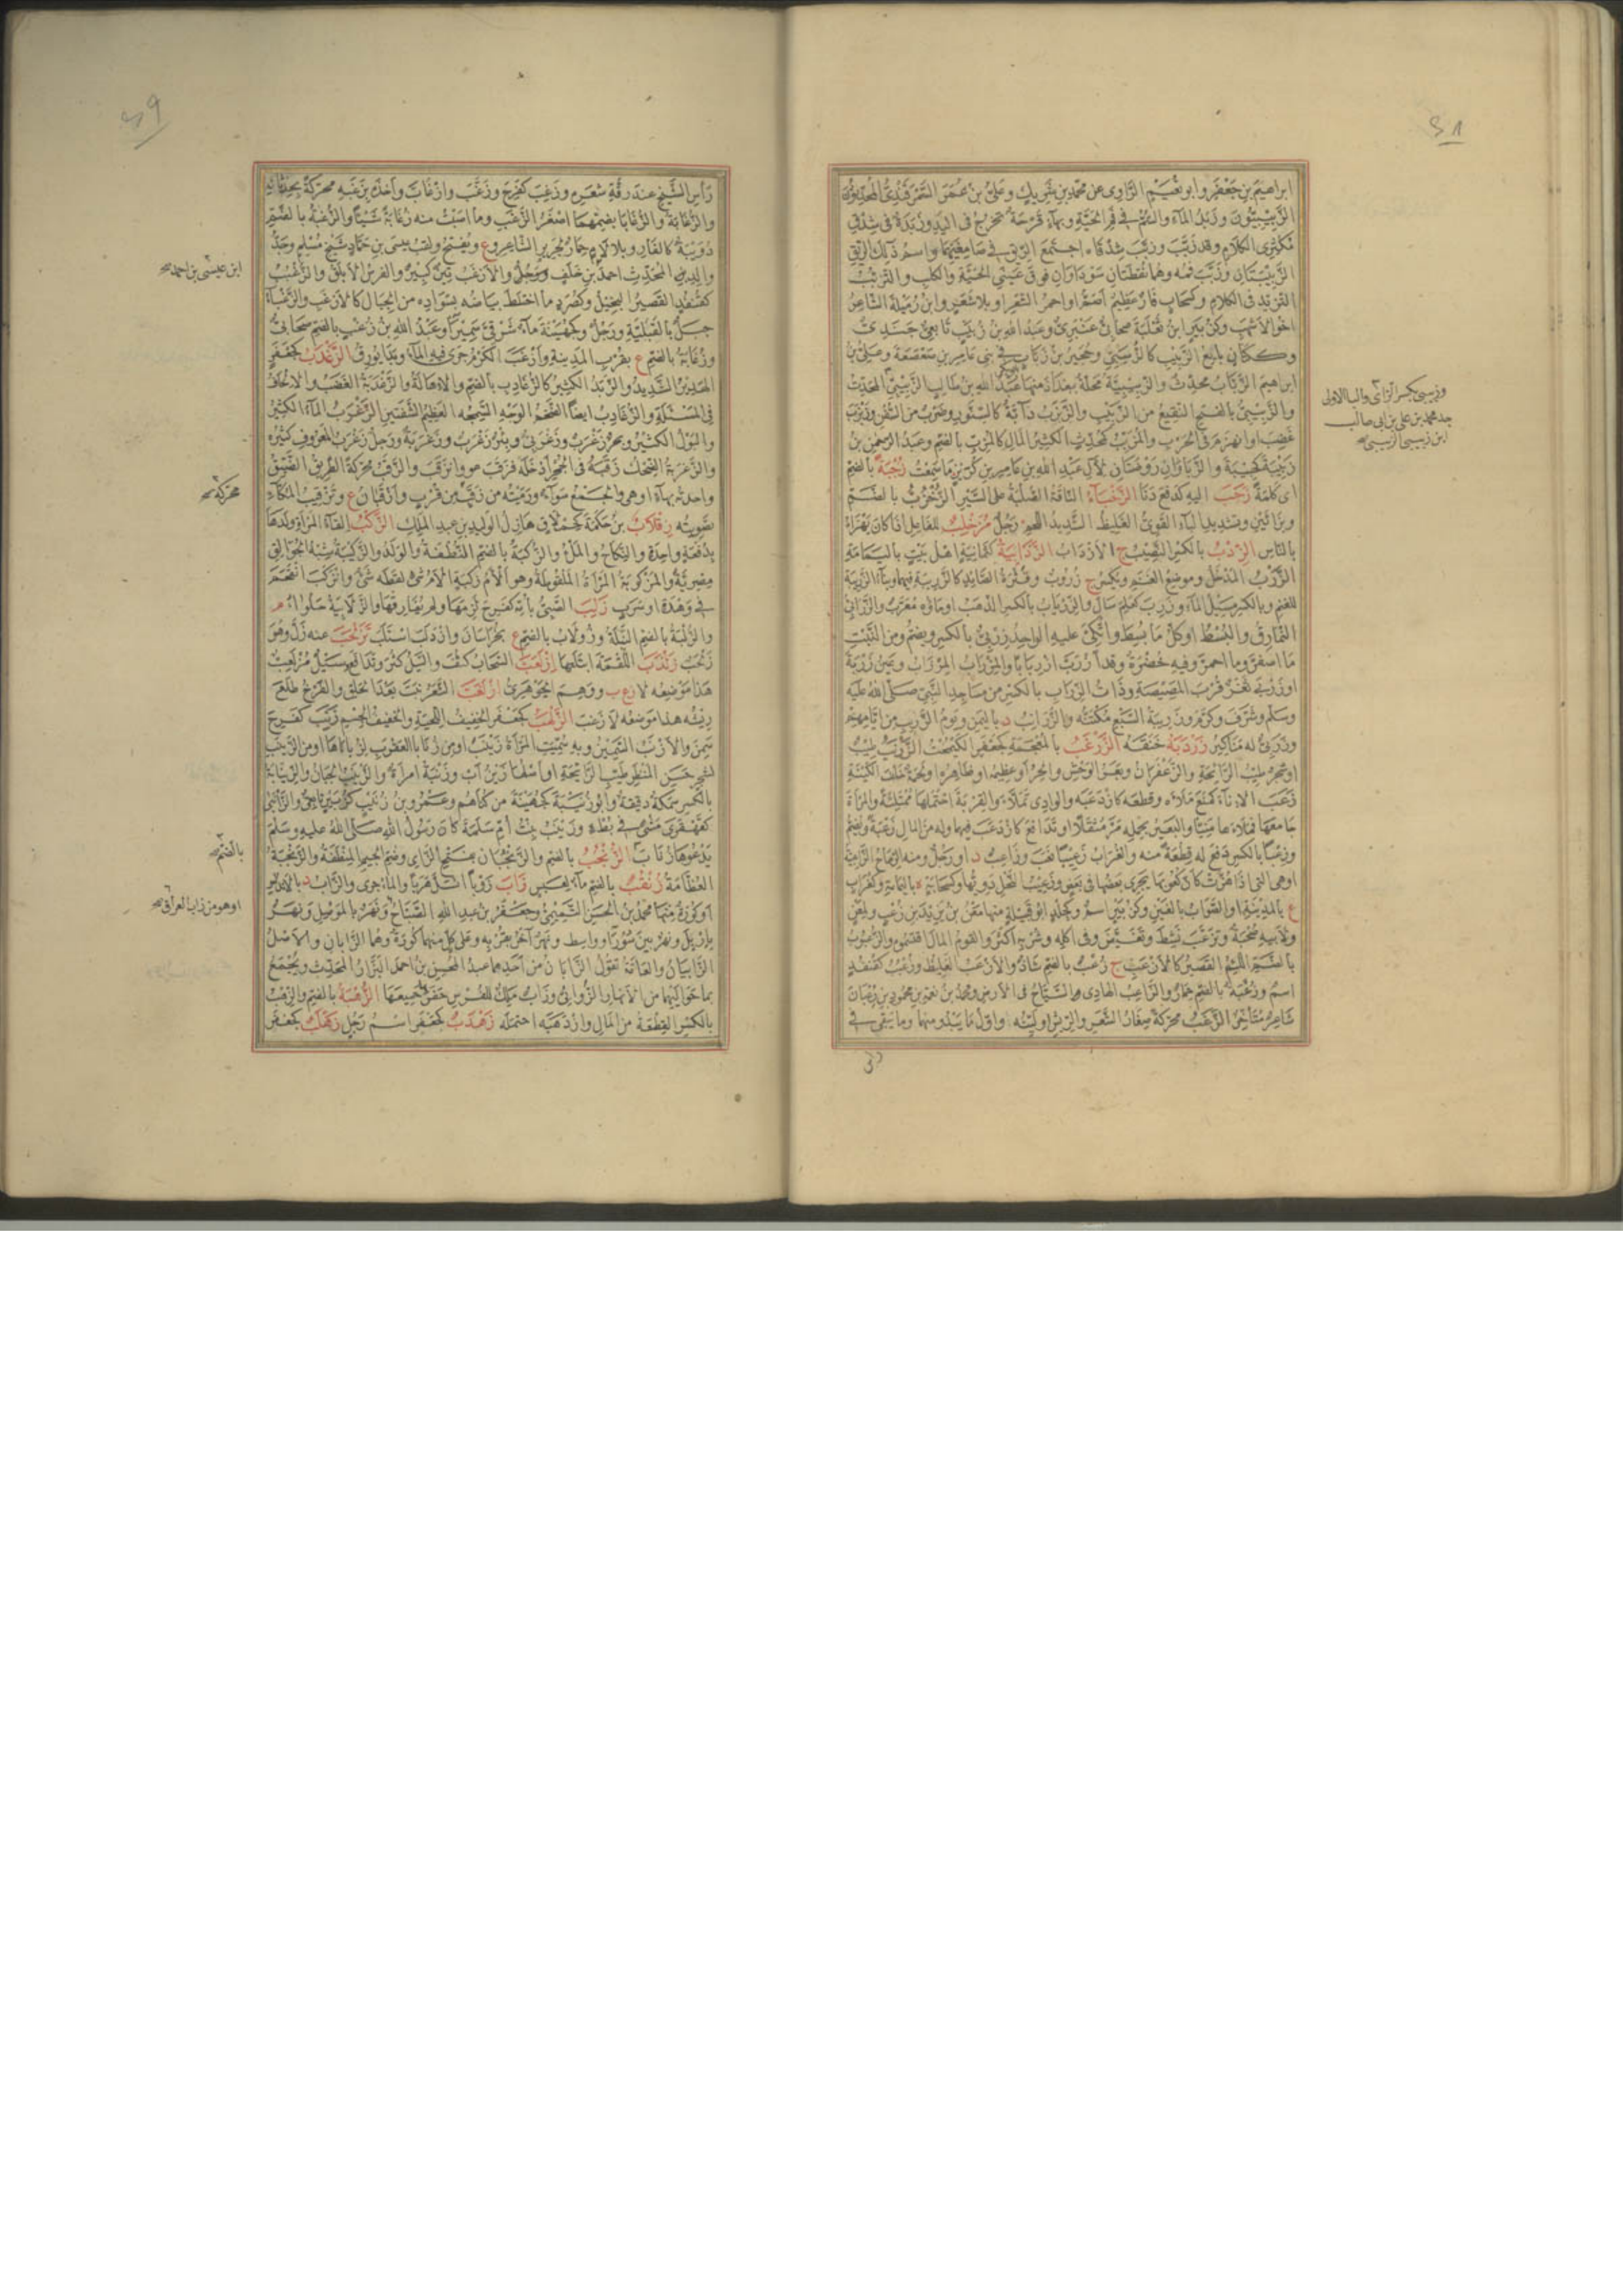 ابراهيم بن جعفر وابو نعيم الراوى عن محمد بن شريك وعلى بن عمر السمرقندى المحدثون
الزبيبيون وزبد الماء والسم فى فم الحية وبهاء قرحة تخرج فى اليد وزبدة فى شدق
مكثرى الكلام وقد زبب وزبب شدقاه اجتمع الريق فى صامغيهما واسم ذلك الريق
الزبيبتان وزبب فمه وهما نقطتان سوداوان فوق عينى الحية والكلب والتزبب
التزبد فى الكلام وكسحاب فار عظيم اصم او احمر الشعر او بلا شعر وابن رميلة الشاعر
اخو الاشهب وكزبير ابن ثعلبة صحابى عنبرى وعبد الله بن زبيب تابعى جندى
وككتانى بائع الزبيب كالزبيبى وحجير بن زباب فى بنى عامر بن صعصعة وعلى بن
ابراهيم الزباب محدث والزبيبية محلة ببغداد منها عبد الله بن طالب الزبيبى المحدث
والزبيبى بالفتح النقيع من الزبيب والزبزب دابة كالسنور وضرب من السفن وزبزب
غضب او انهزم فى الحرب والمزبب كمحدث الكثير المال كالمزب بالضم وعبد الرحمن بن
زبيبة كجهينة والزباوان روضتان لآل عبد الله بن عامر بن كريز ما سمعت زجبة بالضم
اى كلمة زحب اليه كدفع دنا الزخباء الناقة الصلبة على السير الزخزب بالضم
وبزائين وتشديد الباء القوى الغليظ الشديد اللحم رجل مزخلب للفاعل اذا كان يهزأ
بالناس الزدب بالكسر النصيب ج الازداب الزرابية ككلابية اهل بيت باليمامة
الزرب المدخل وموضع الغنم ويكسر ج زروب وقترة الصائد كالزريبة فيهما وبناء الزريبة
للغنم وبالكسر مسيل الماء وزرب كعلم سال والزرياب بالكسر الذهب او ماؤه معرب والزرابى
النمارق والبسط او كل ما بسط واتكئ عليه الواحد زربى بالكسر ويضم ومن النبت
ما اصفر وما احمر وفيه خضرة وقد ازرب ازربابا والمزراب الميزاب وعين زربة
او زربى ثغر قرب المصيصة وذات الزراب بالكسر من مساجد النبى صلى الله عليه
وسلم وشرف وكرم وزريبة السبع مكتنه والزرائب د باليمن ويوم الزريب من ايامهم
وزربى له مناكير زردبه خنقه الزرغب بالمعجمة كجعفر الكيمخت الزرنب طيب
او شجر طيب الرائحة والزعفران وبعر الوحش والحر او عظيمه او ظاهره او لحمة خلف الكينة
زعب الاناء كمنع ملأه وقطعه كازدعبه والوادى تملأ والقربة احتملها ممتلئة والمراة
جامعها فملاءها منيا والبعير بحمله مر مثقلا او تدافع كازدعب فيهما وله من المال زعبة ويضم
وزعبا بالكسر دفع له قطعة منه والغراب زعيبا نعب وزاعب د او رجل ومنه الرماح الزاعبية
او هى التى اذا هزت كان كعوبها يجرى بعضها فى بعض وزعيب النحل دويها وكسحابة ة باليمامة وكغراب
ع بالمدينة او الصواب بالغين وكزبير اسم وكجلد ابو قبيلة منها معن بن يزيد بن زعب ولمعن
ولابيه صحبة وتزعب نشط وتغيض وفى اكله وشربه اكثر والقوم المال اقتسموه والزعبوب
بالضم اللئيم القصير كالازعب ج زعب بالضم شاذ والازعب الغليظ وزعب كقنفذ
اسم وزعبة بالضم حمار والزاعب الهادى والسياح فى الارض ومحمد بن نعم بن محمود بن زعبان
شاعر متاخر الزغب محركة صغار الشعر والريش ولينه واول ما يبدو منهما وما يبقى فى
راس
وزبيبى بكسر الزاى والباء الاولى
جد محمد بن على بن ابى طالب
ابن زبيبى الزبيبى صح
راس الشيخ عند رقة شعره وزغب كفرح وزغب وازغاب واخذه بزغبه محركة بحدثانه
والزغابة والزغابا بضمهما اصغر الزغب وما اصبت منه زغابة شيئا والزغبة بالضم
دويبة كالفار وبلا لام حمار لجرير الشاعر وع ويفتح ولقب عيسى بن حماد شيخ مسلم وجد
والد المحدث احمد بن خلف ورجل والازغب تين كبير والفرس الابلق والزغبب
كقنفذ القصير البخيل وكصرد ما اختلط بياضه بسواده من الحبال كالازغب والزغباء
جبل بالقبلية ورجل وكجهينة ماءة شرقى سميرا وعبد الله بن زغب بالضم صحابى
وزغابة بالضم ع بقرب المدينة وازغب الكرم جرى فيه الماء وبدا يورق الزغدب كجعفر
الهدير الشديد والزبد الكثير كالزغادب بالضم والاهالة والزغدبة الغضب والالحاف
فى المسئلة والزغادب ايضا الضخم الوجه السمجه العظيم الشفتين الزغرب الماء الكثير
والبول الكثير وبحر زغرب وزغربى وبئر زغرب وزغربة ورجل زغرب المعروف كثيره
والزغربة الضحك زقبه فى الجحر ادخله فزقب هو وانزقب والزقب محركة الطريق الضيق
واحدته بهاء او هى والجمع سواء ورميته من زقب من قرب وازقبان ع وتزقيب المكاء
تصويته زقلاب بن حكمة كجعثمة فى هازل الوليد بن عبد الملك الزكب القاء المراة ولدها
بدفعة واحدة والنكاح والملء والزكبة بالضم النطفة والولد والزكيبة شبه الجوالق
مصرية والمزكوبة المراة الملقوطة وهو الأم زكبة الام شىء لفظه شىء وانزكب انقحم
فى وهدة او سرب زلب الصبى بامه كفرح لزمها ولم يفارقها والزلابية حلواء م
والزلبة بالضم النبلة وزولاب بالضم ع بخراسان وازدلب استلب تزلحب عنه زل وهو
زلحب زلدب اللقمة ابتلعها ازلعب السحاب كثف والسيل كثر وتدافع سيل مزلعب
هذا موضعه لا زعب ووهم الجوهرى ازلغب الشعر نبت بعد الحلق والفرخ طلع
ريشه هذا موضعه لا زغب الزلهب كجعفر الخفيف اللحية والخفيف الجسم زنب كفرح
سمن والازنب السمين وبه سميت المراة زينب او من زنابا العقرب لزباناها او من الزينب
لشجر حسن المنظر طيب الرائحة او اصلها زين اب وزنبة امراة والزينب الجبان والزينابة
بالكسر سمكة دقيقة وابو زنيبة كجهينة من كناهم وعمرو بن زنيب كزبير تابعى والزأنبى
كقهقرى مشى فى بطء وزينب بنت ام سلمة كان رسول الله صلى الله عليه وسلم
يدعوها زناب الزنجب بالضم والزنجبان بفتح الزاى وضم الجيم المنطقة والزنجبة
العظامة زنقب بالضم ماء لعبس زاب زوبا انسل هربا والماء جرى والزاب د بالاندلس
او كورة منها محمد بن الحسن التميمى وجعفر بن عبد الله الصباح ونهر بالموصل ونهر
باربل ونهر بين سورا وواسط ونهر آخر بقربه وعلى كل منهما كورة وهما الزابان والاصل
الزابيان والعامة تقول الزابان من احدهما عبد المحسن بن احمد البزاز المحدث ويجمع
بما حواليهما من الانهار الزوابى وزاب ملك للفرس حفر جميعها الزهبة بالضم والزهب
بالكسر القطعة من المال وازدهبه احتمله زهدب كجعفر اسم رجل زهلب كجعفر
ابن عيسى بن احمد صح
محركة صح
بالضم صح
او هو من زاب العراق صح